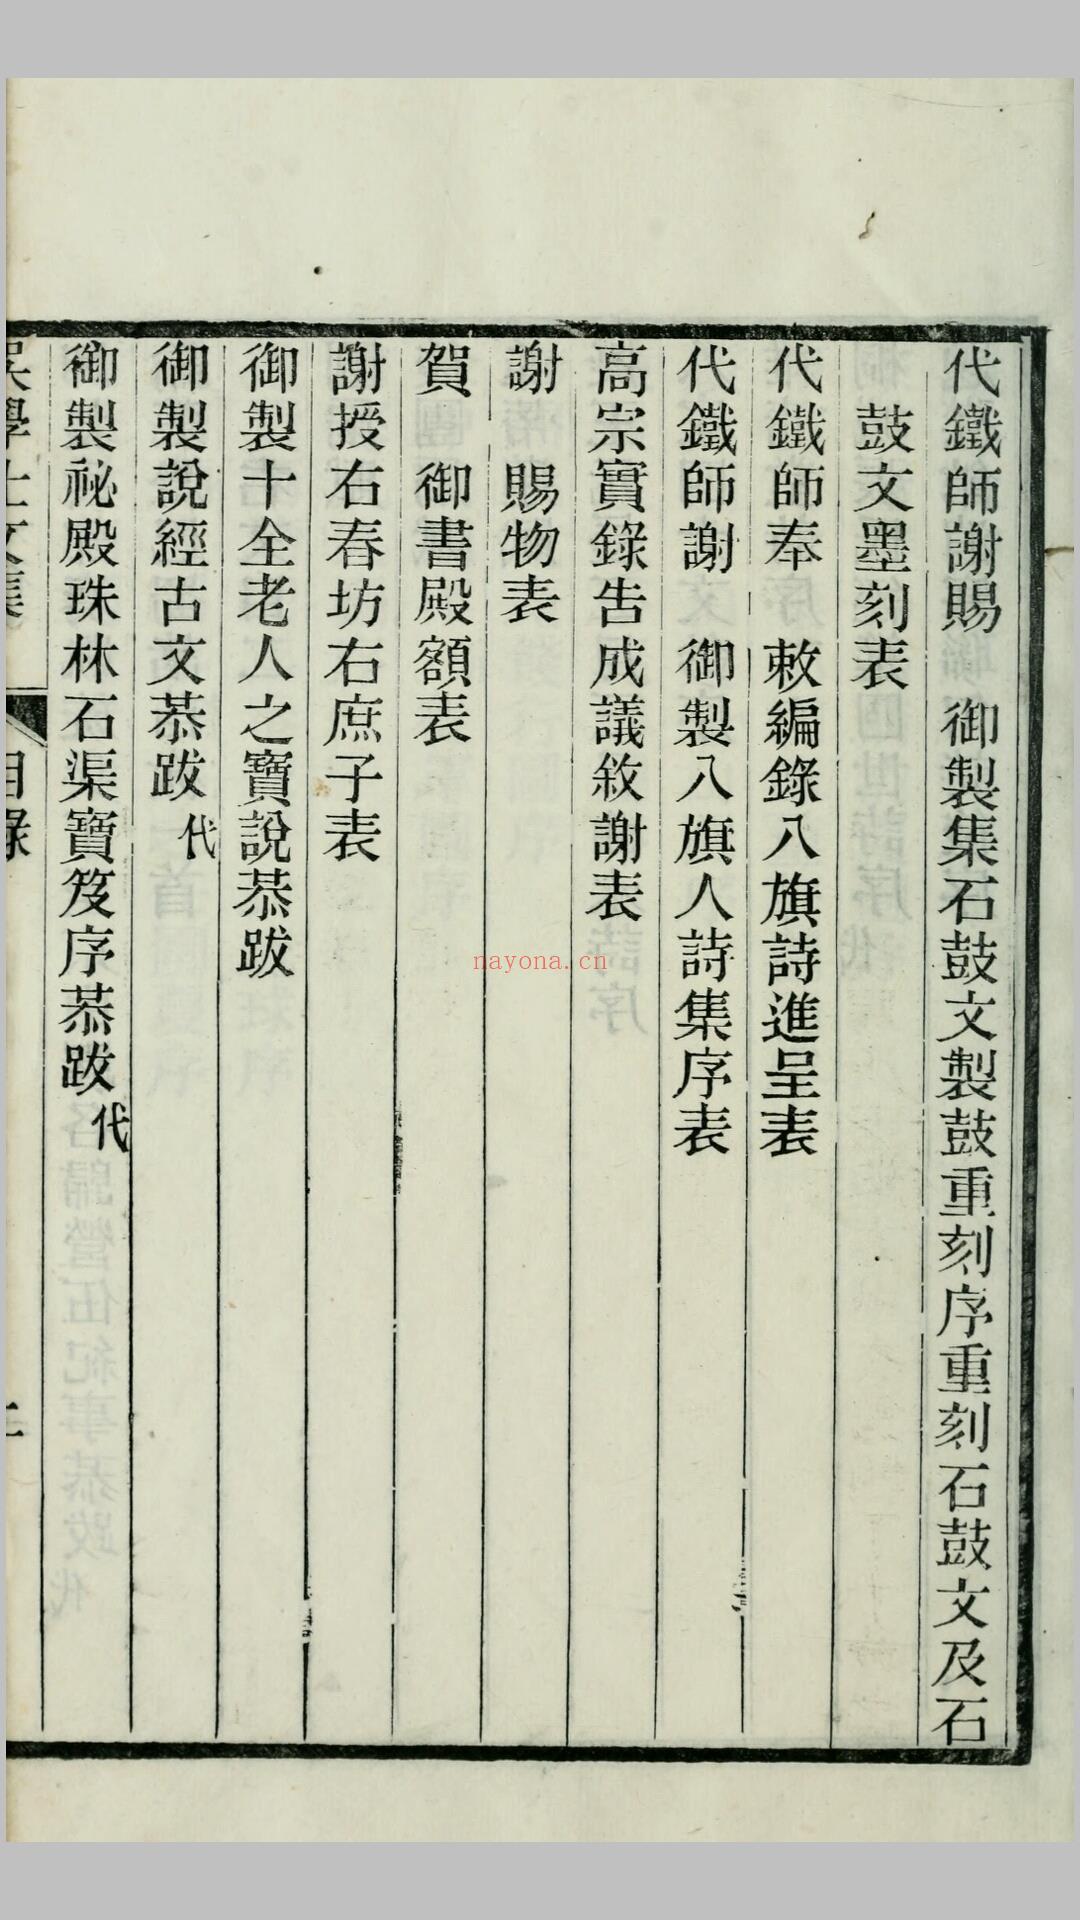 代鐵師謝賜　御製集石鼓文製鼓重刻序重刻石鼓文及石
鼓文墨刻表
代鐵師奉　敕編錄八旗詩進呈表
代鐵師謝　御製八旗人詩集序表
高宗實錄告成議敘謝表
謝　賜物表
賀　御書殿額表
謝授右春坊右庶子表
御製十全老人之寶說恭跋
御製說經古文恭跋　代
御製祕殿珠林石渠寶笈序恭跋　代
吳學士文集　目錄　二
nayona.cn